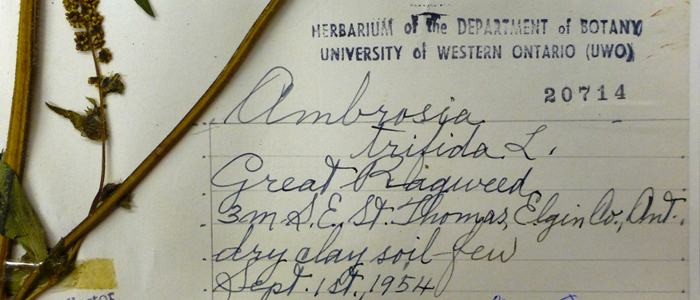 HERBARIUM of the DEPARTMENT of BOTANY
UNIVERSITY of WESTERN ONTARIO (UWO)
20714
Ambrosia
trifida L.
Great Ragweed
3m S.E. St. Thomas, Elgin Co., Ont.
dry clay soil - few
Sept. 1st, 1954